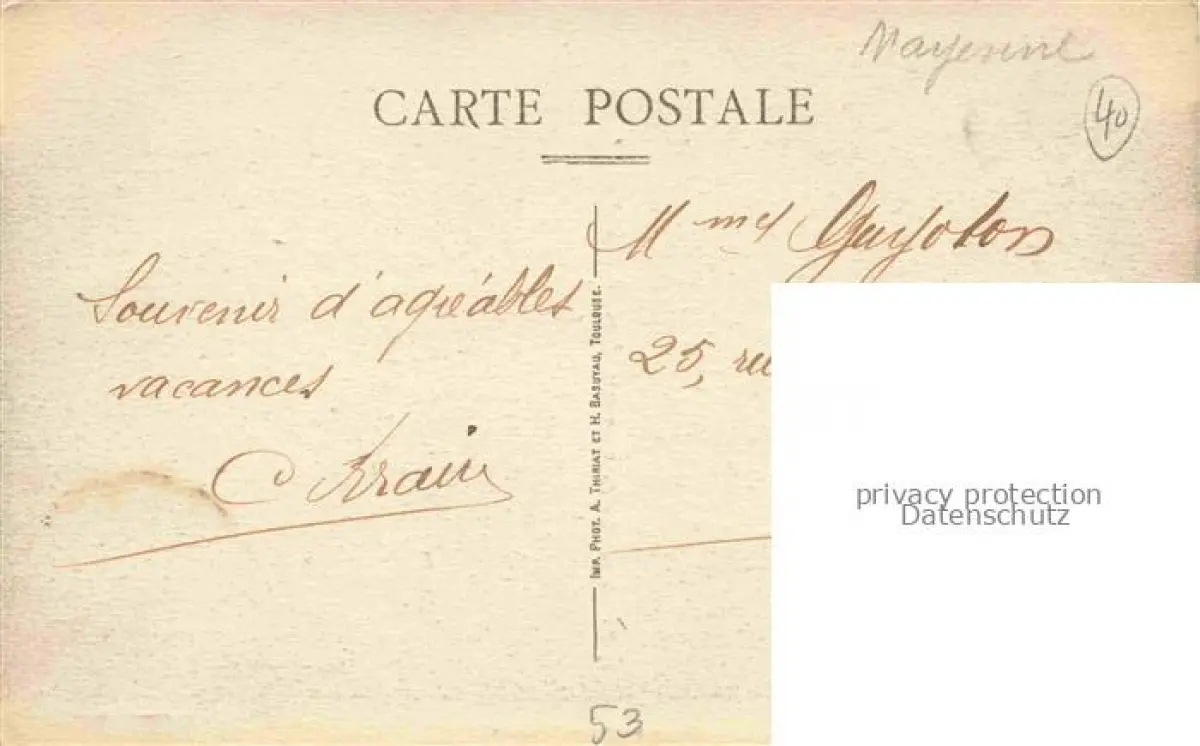 Mayenne
CARTE POSTALE
40
Souvenir d'agréables
vacances
C
IMP. PHOT. A. THIRIAT ET H. BASUYAU, TOULOUSE.
25, ru
privacy protection
Datenschutz
53